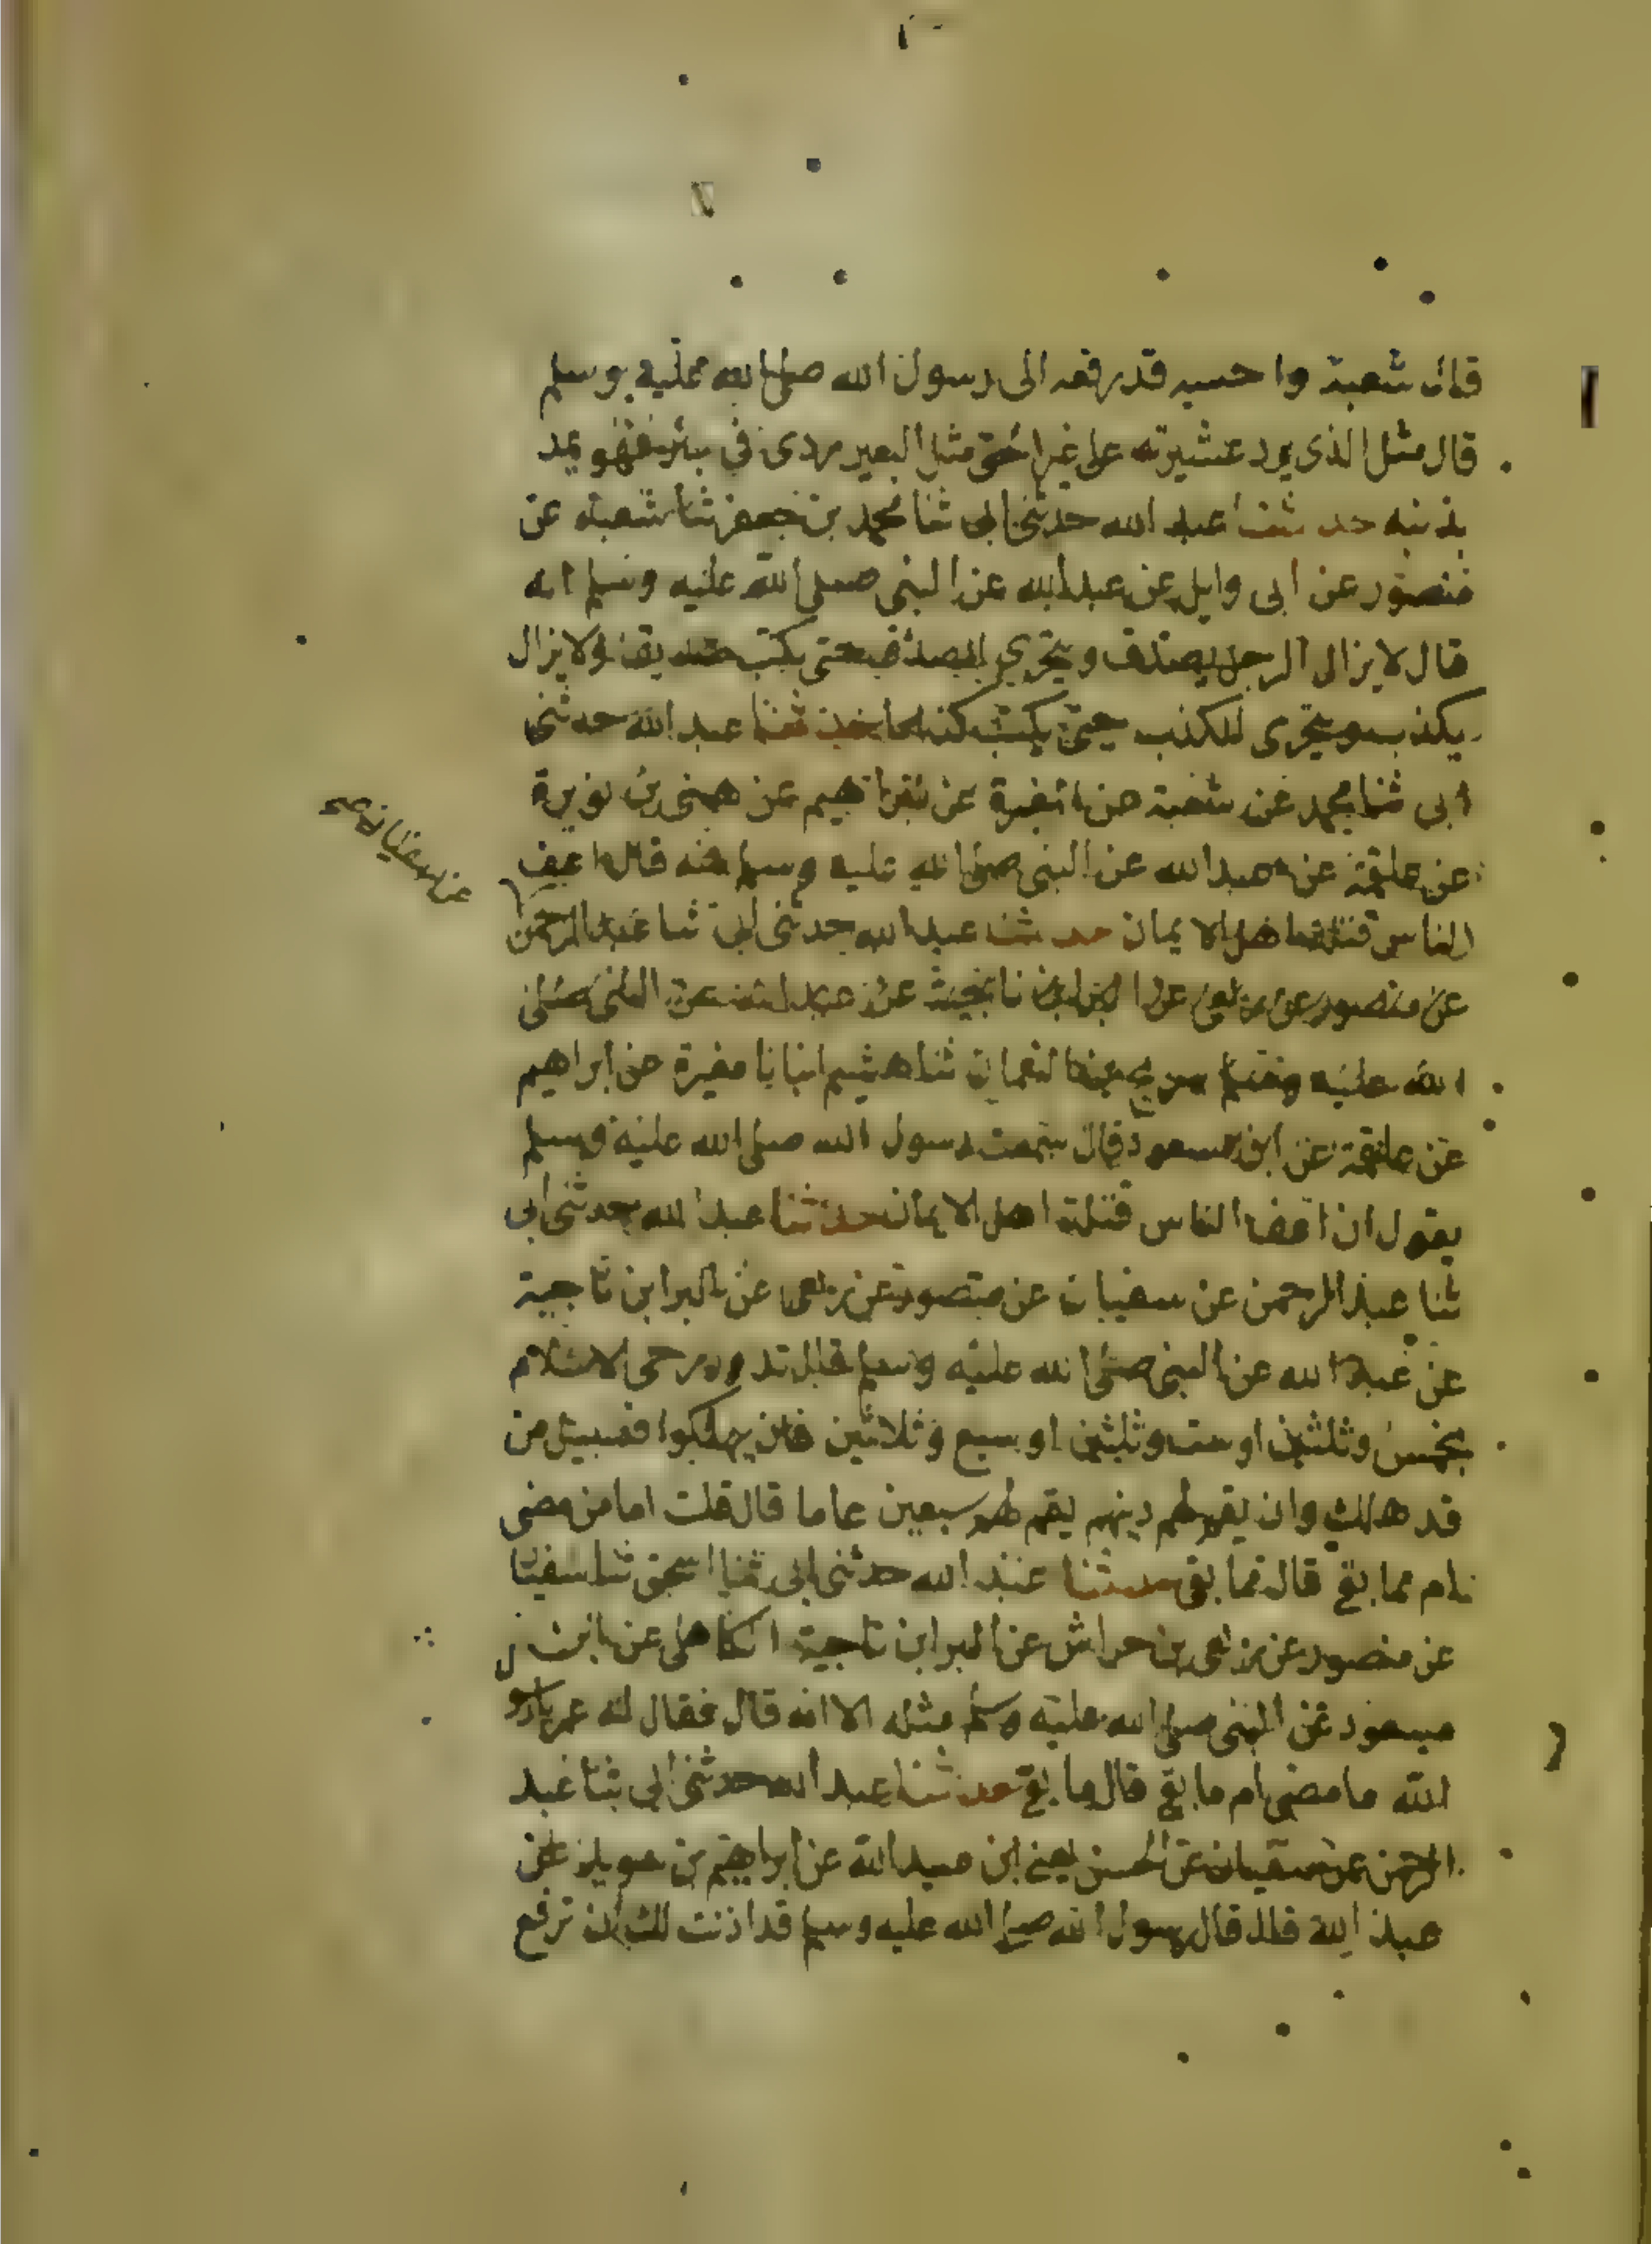 قال شعبة واحسبه قد رفعه الى رسول الله صلى الله عليه وسلم
قال مثل الذى يرد عشيرته على غير الحق مثل البعير ردى فى بئر فهو يمد
بذنبه حدثنا عبد الله حدثنى ابى ثنا محمد بن جعفر ثنا شعبة عن
منصور عن ابى وايل عن عبد الله عن النبى صلى الله عليه وسلم انه
قال لا يزال الرجل يصدق ويتحرى الصدق حتى يكتب صديقا ولا يزال
يكذب ويتحرى الكذب حتى يكتب كذابا حدثنا عبد الله حدثنى
ابى ثنا محمد عن شعبة عن مغيرة عن ابراهيم عن هنى بن نويرة
عن علقمة عن عبد الله عن النبى صلى الله عليه وسلم انه قال اعف
الناس قتلة اهل الايمان حدثنا عبد الله حدثنى ابى ثنا عبد الرحمن
عن سفيان صح
عن منصور عن ربعى عن البرا بن ناجية عن عبد الله عن النبى صلى
الله عليه وسلم سريج بن النعمان ثنا هشيم انبانا مغيرة عن ابراهيم
عن علقمة عن ابن مسعود قال سمعت رسول الله صلى الله عليه وسلم
يقول ان اعف الناس قتلة اهل الايمان حدثنا عبد الله حدثنى ابى
ثنا عبد الرحمن عن سفيان عن منصور عن ربعى عن البرا بن ناجية
عن عبد الله عن النبى صلى الله عليه وسلم قال تدور رحى الاسلام
بخمس وثلثين او ست وثلثين او سبع وثلاثين فان يهلكوا فسبيل من
قد هلك وان يقم لهم دينهم يقم لهم سبعين عاما قال قلت امامن مضى
ام مما بقى قال مما بقى حدثنا عبد الله حدثنى ابى ثنا اسحق ثنا سفيان
عن منصور عن ربعى بن حراش عن البرا بن ناجية الكاهلى عن ابن
مسعود عن النبى صلى الله عليه وسلم مثله الا انه قال فقال له عمر يا رسول
الله ما مضى ام ما بقى قال ما بقى حدثنا عبد الله حدثنى ابى ثنا عبد
الرحمن عن سفيان عن الحسن يعنى ابن عبيد الله عن ابراهيم بن سويد عن
عبد الله قال قال رسول الله صلى الله عليه وسلم قد اذنت لك ان ترفع